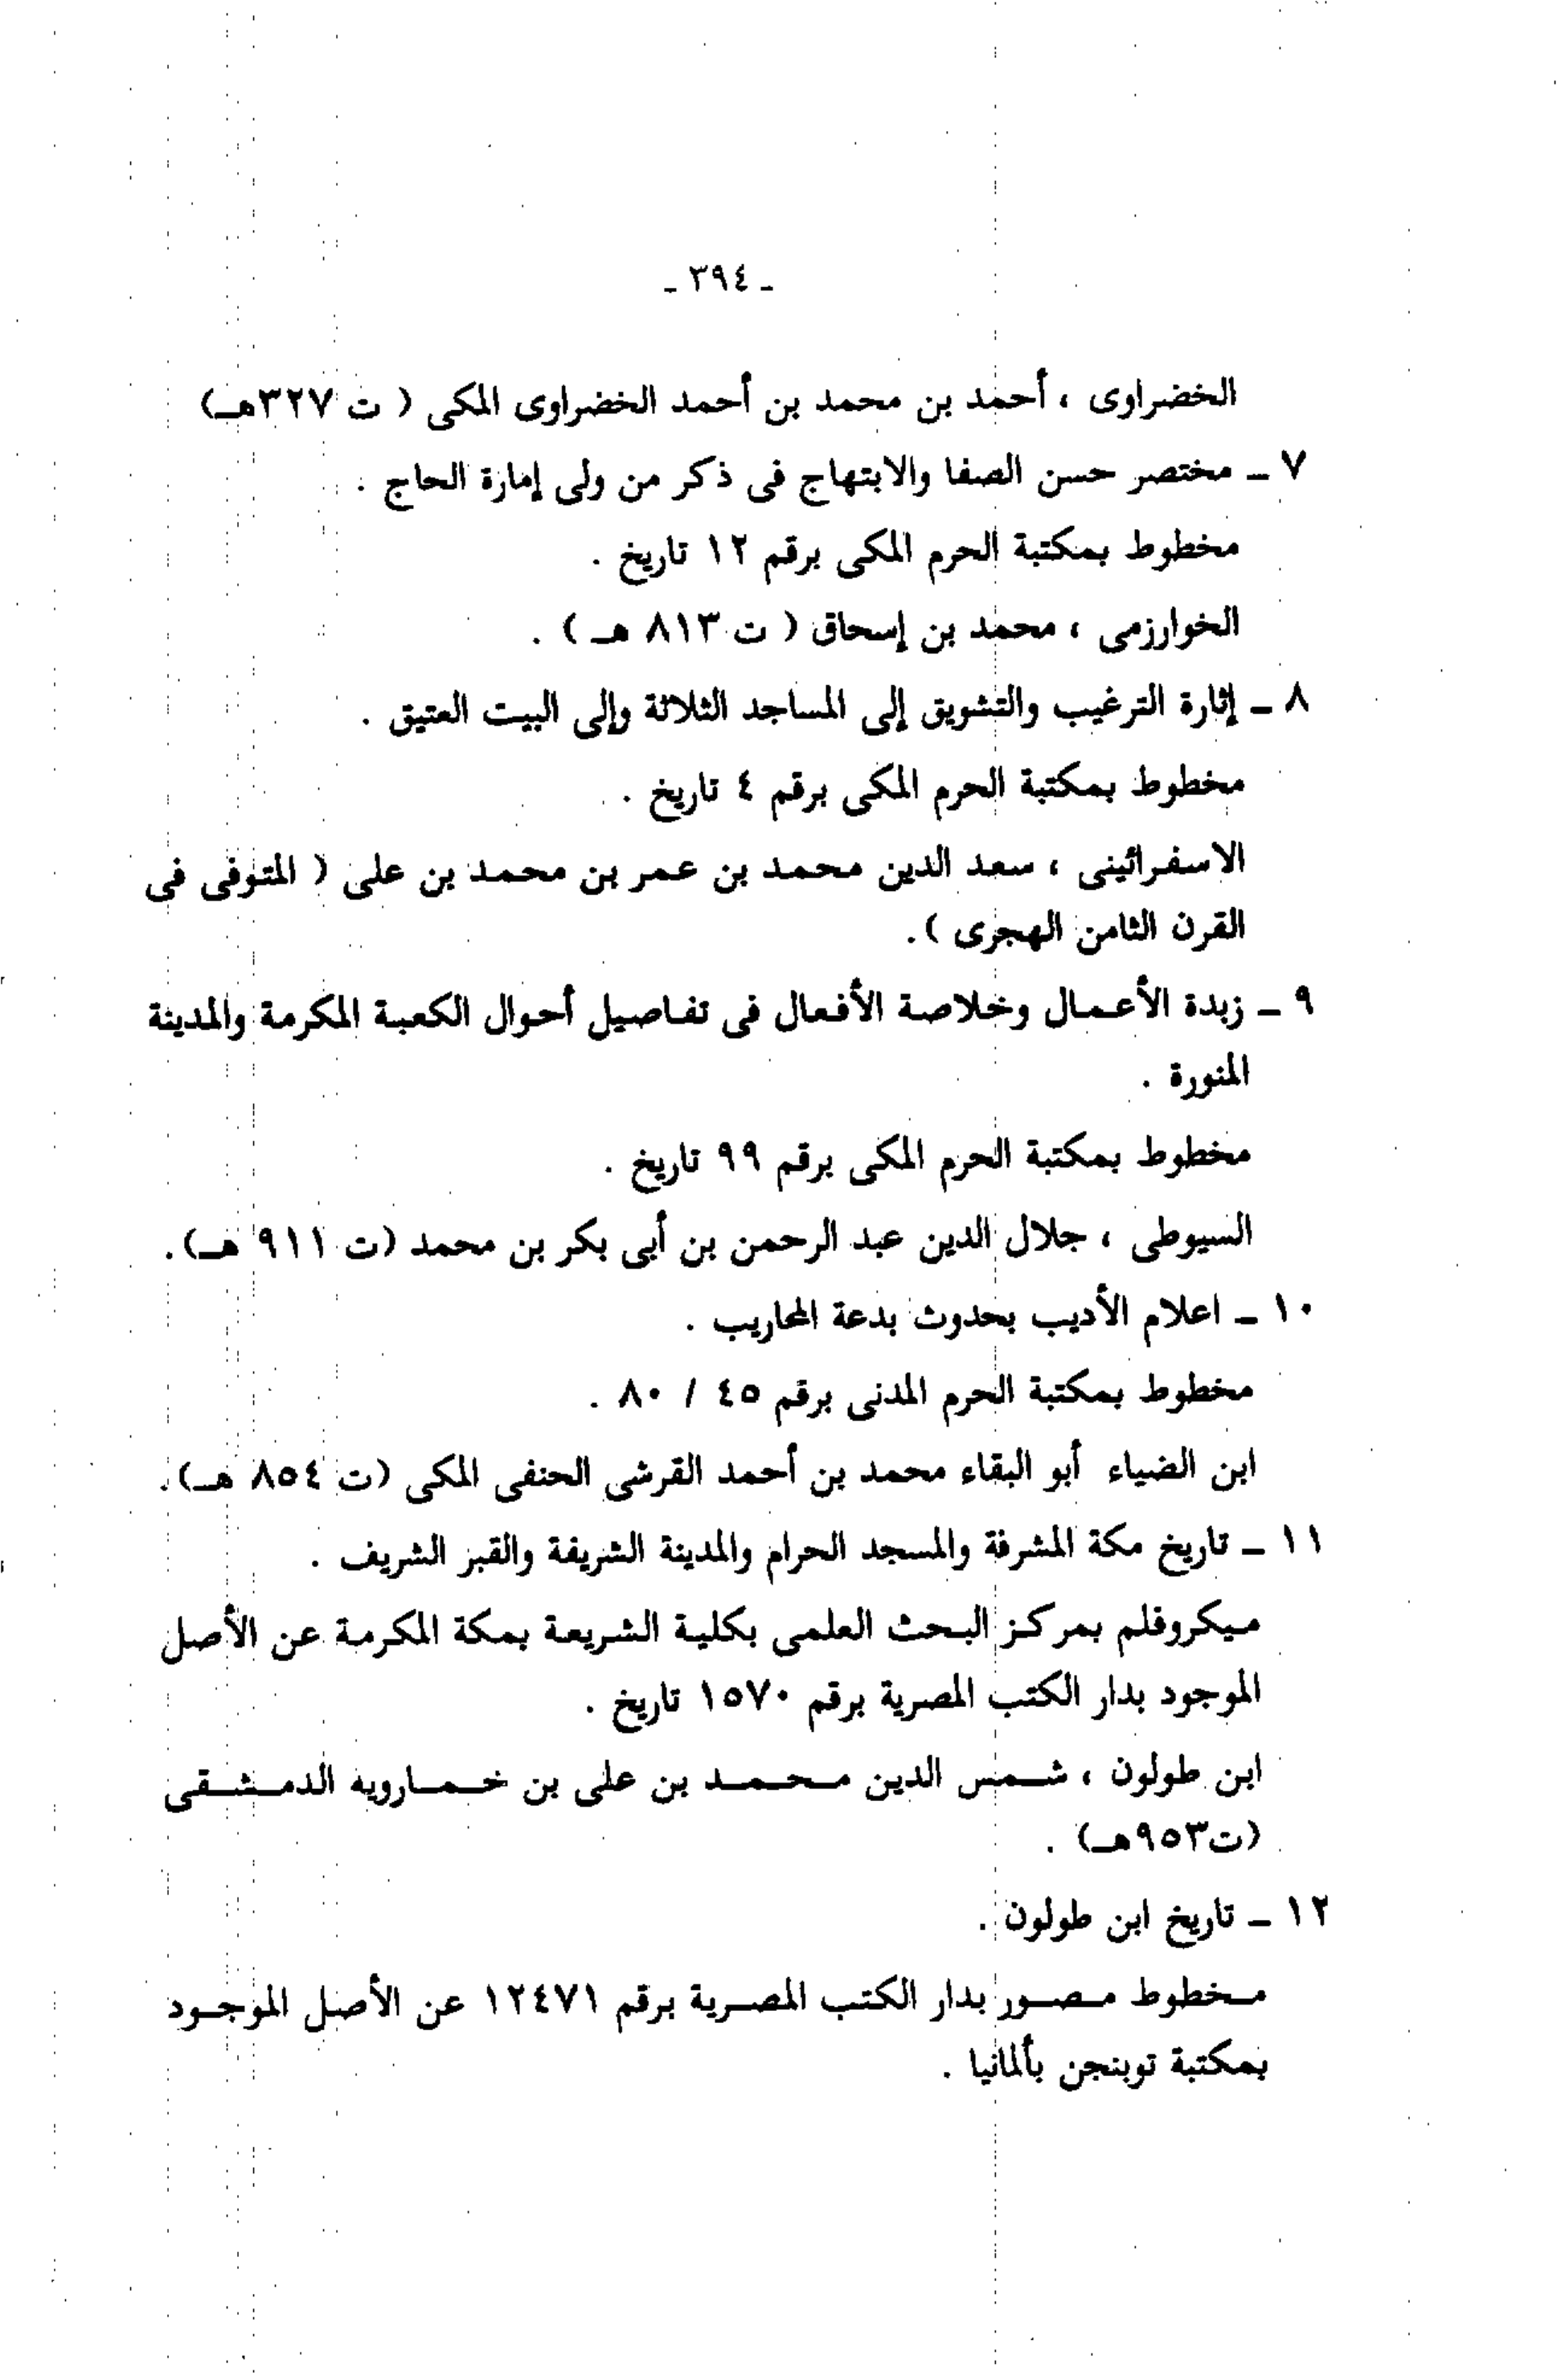 - ٣٩٤ -
الخضراوى ، أحمد بن محمد بن أحمد الخضراوى المكى ( ت ٣٢٧هـ)
٧ - مختصر حسن الصفا والابتهاج فى ذكر من ولى إمارة الحاج .
مخطوط بمكتبة الحرم المكى برقم ١٢ تاريخ .
الخوارزمى ، محمد بن إسحاق ( ت ٨١٣ هـ ) .
٨ - إثارة الترغيب والتشويق إلى المساجد الثلاثة وإلى البيت العتيق .
مخطوط بمكتبة الحرم المكى برقم ٤ تاريخ .
الاسفرائينى ، سعد الدين محمد بن عمر بن محمد بن على ( المتوفى فى
القرن الثامن الهجرى ) .
٩ - زبدة الأعمال وخلاصة الأفعال فى تفاصيل أحوال الكعبة المكرمة والمدينة
المنورة .
مخطوط بمكتبة الحرم المكى برقم ٩٩ تاريخ .
السيوطى ، جلال الدين عبد الرحمن بن أبى بكر بن محمد (ت ٩١١ هـ) .
١٠ - اعلام الأديب بحدوث بدعة المحاريب .
مخطوط بمكتبة الحرم المدنى برقم ٤٥ / ٨٠ .
ابن الضياء أبو البقاء محمد بن أحمد القرشى الحنفى المكى (ت ٨٥٤ هـ) .
١١ - تاريخ مكة المشرفة والمسجد الحرام والمدينة الشريفة والقبر الشريف .
ميكروفلم بمركز البحث العلمى بكلية الشريعة بمكة المكرمة عن الأصل
الموجود بدار الكتب المصرية برقم ١٥٧٠ تاريخ .
ابن طولون ، شمس الدين محمد بن على بن خمارويه الدمشقى
(ت٩٥٣هـ) .
١٢ - تاريخ ابن طولون .
مخطوط مصور بدار الكتب المصرية برقم ١٢٤٧١ عن الأصل الموجود
بمكتبة توبنجن بألمانيا .